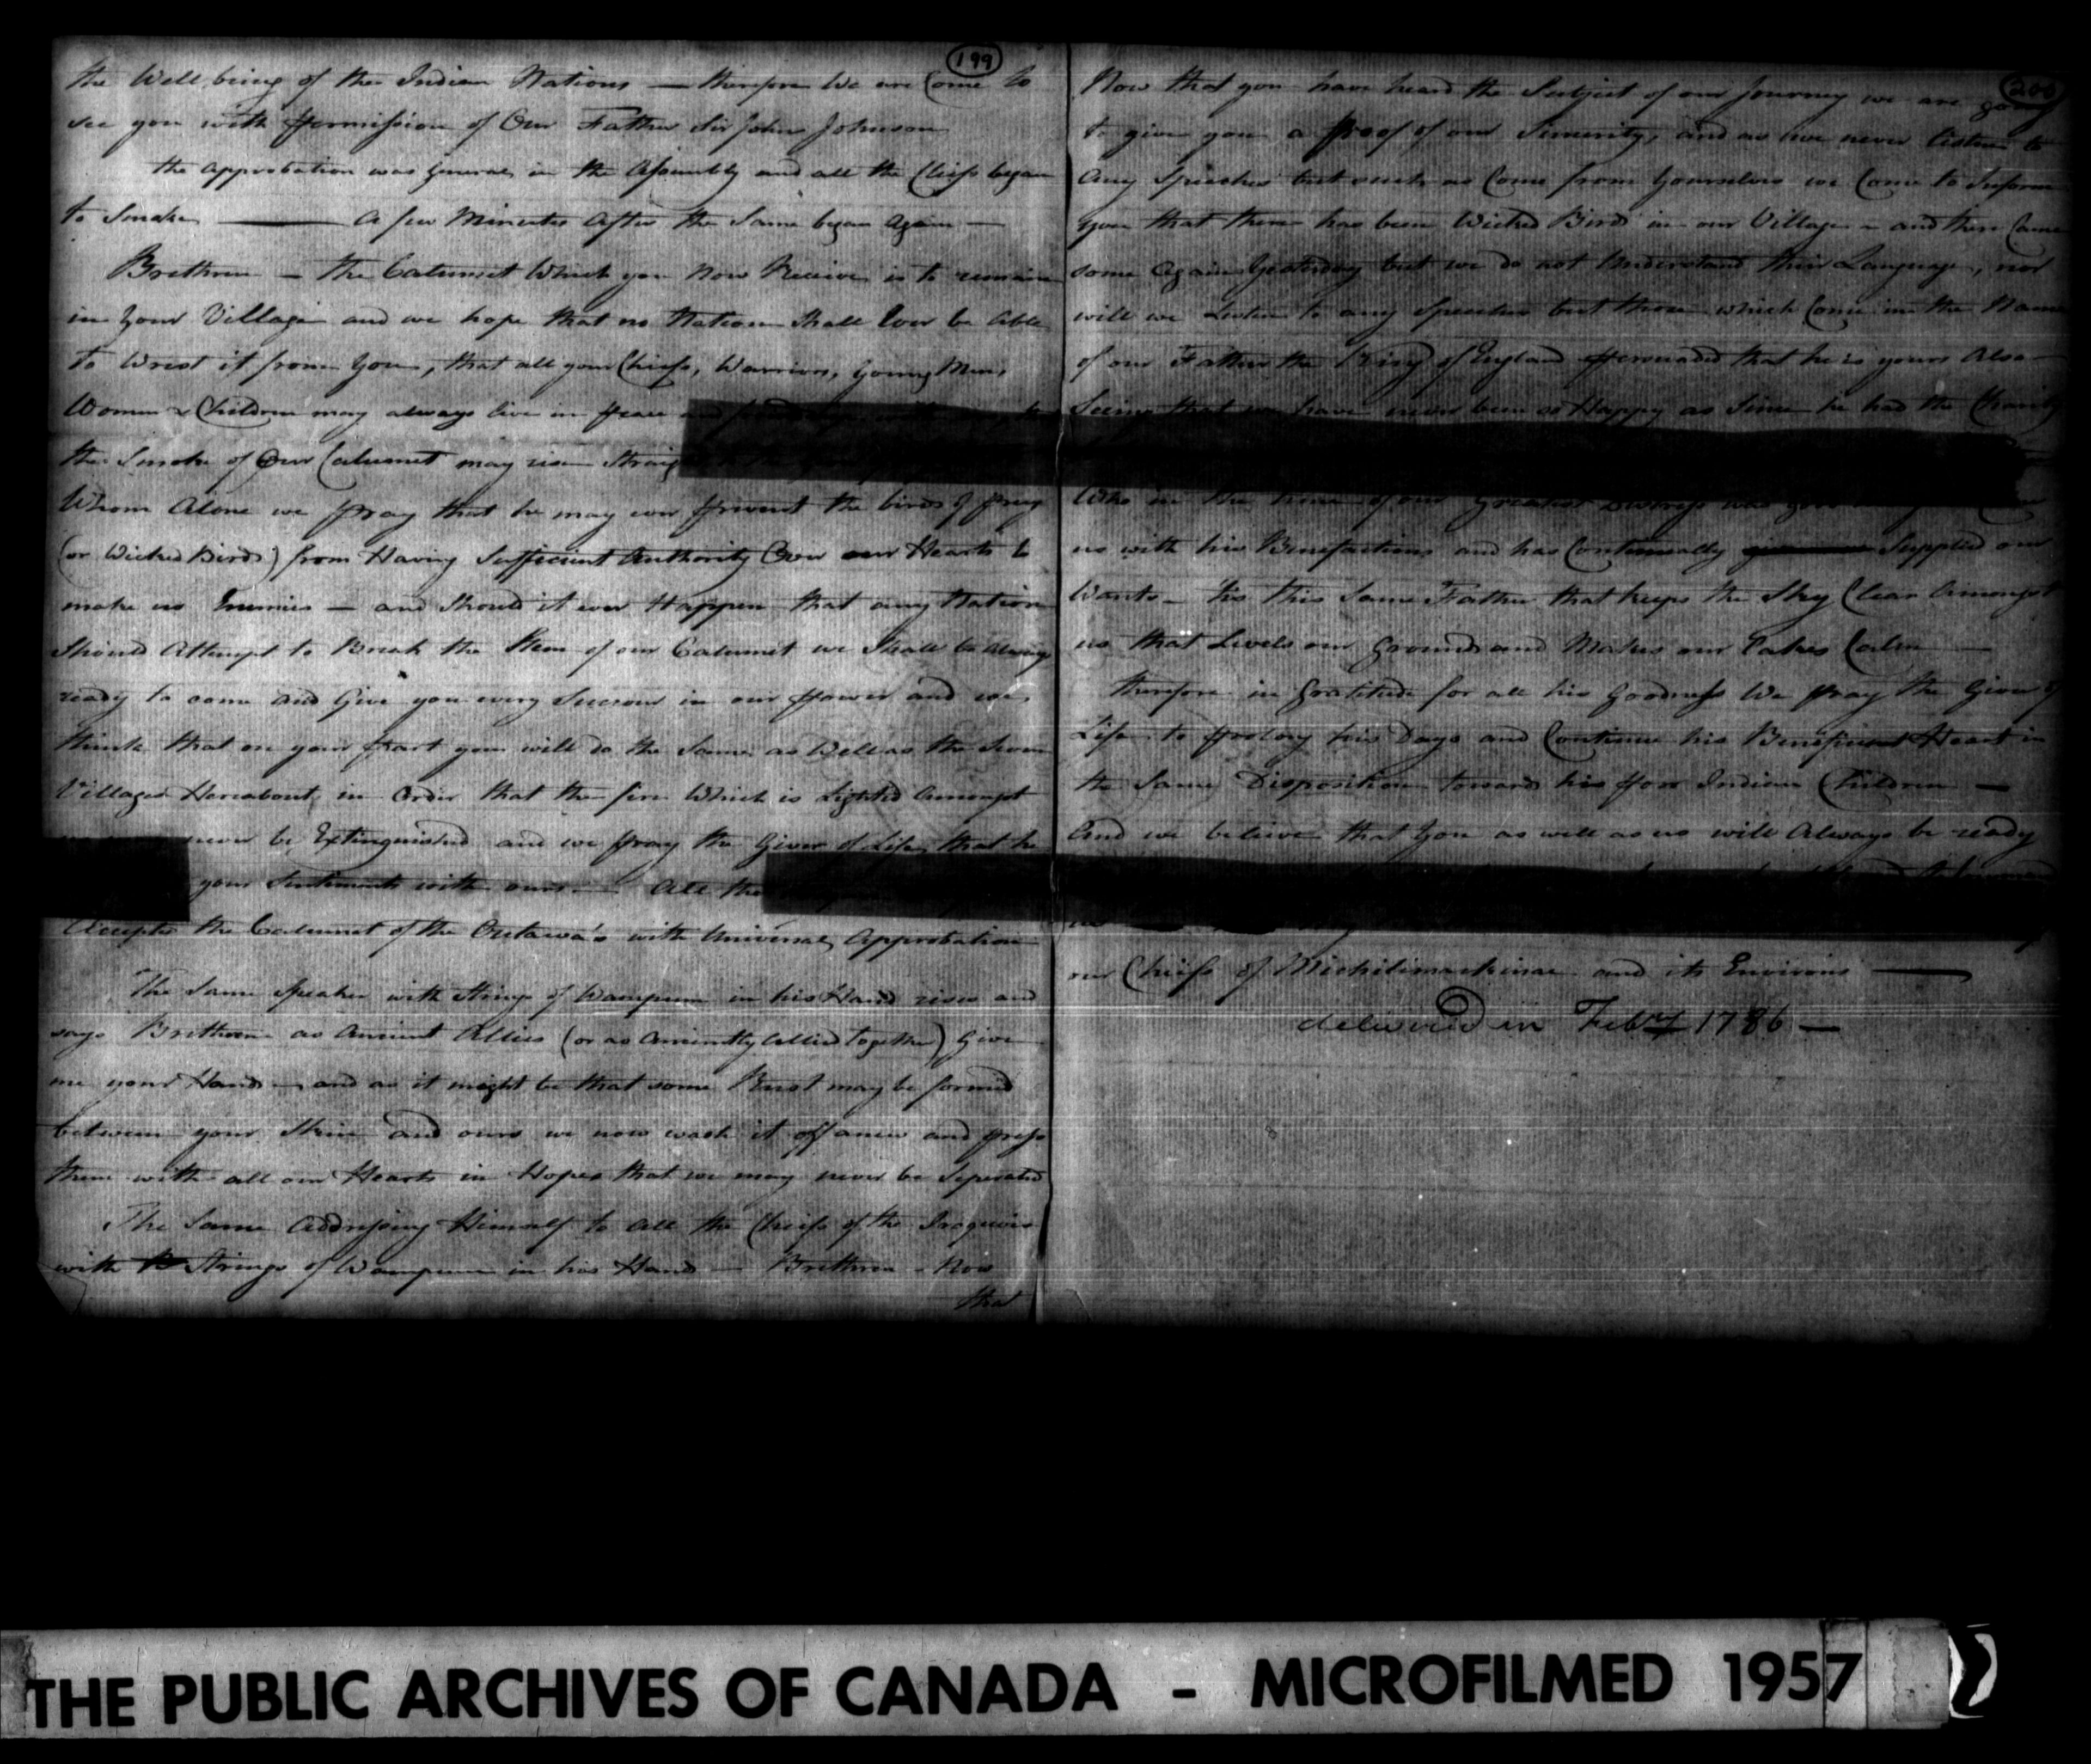 199
the Well being of the Indian Nations — therefore We are Come to
see you with Permission of Our Father Sir John Johnson
the Approbation was general in the Assembly and all the Chiefs began
to Smoke — a few Minutes After the Same began Again —
Brethren — the Calumet Which you Now Receive is to remain
in your Village and we hope that no Nation Shall Ever be Able
to Wrest it from You, that all your Chiefs, Warriors, Young Men,
Women & Children may always live in Peace and
the Smoke of Our Calumet may rise Straight
Whom Alone we Pray that he may ever Prevent the birds of Prey
(or Wicked Birds) from Having Sufficient Authority Over our Hearts to
make us Enemies — and Should it ever Happen that any Nation
Should Attempt to Break the Stem of our Calumet we Shall be Always
ready to come and Give you every Succour in our Power and we
think that on your Part you will do the Same as Well as the Seven
Villages Hereabout, in Order that the fire Which is Lighted Amongst
never be Extinguished and we Pray the Giver of Life, that he
your Sentiments with ours — All the
Accepted the Calumet of the Outawa's with Universal Approbation
The Same Speaker with Strings of Wampum in his Hand rises and
says Brethren as Ancient Allies (or as Anciently Allied together) Give
me your Hands — and as it might be that some Rust may be formed
between your Skin and ours we now wash it off anew and Press
them with all our Hearts in Hopes that we may never be Seperated
The Same Addressing Himself to all the Chiefs of the Iroquois
with Strings of Wampum in his Hand — Brethren - Now
that
200
Now that you have heard the Subject of our Journey we are going
to give you a Proof of our Sincerity, and as we never listen to
Any Speeches but such as Come from Yourselves we Come to Inform
you that there has been Wicked Birds in our Village - and there Came
some Again Yesterday but we do not Understand their Language, nor
will we Listen to any Speeches but those which Come in the Name
of our Father the King of England Perswaded that he is yours Also —
Seeing that we have never been so Happy as Since he had the Charity
Who in the time of our Greatest Distress was
us with his Benefactions and has Continually Supplied our
Wants — tis this Same Father that keeps the Sky Clear Amongst
us that Levels our Grounds and Makes our Lakes Calm —
therefore in Gratitude for all his Goodness We Pray the Giver of
Life to Prolong his Days and Continue his Beneficent Heart in
the Same Disposition towards his Poor Indian Children —
And we beleive that You as well as us will Always be ready
our Chiefs of Michilimackinac and its Environs —
delivered in Feb.ry 1786 —
THE PUBLIC ARCHIVES OF CANADA - MICROFILMED 1957